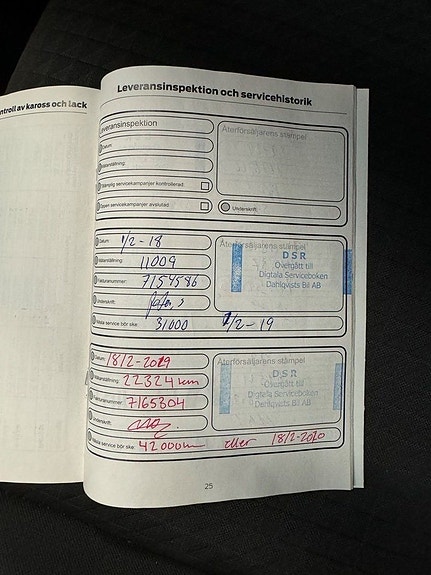 ntroll av kaross och lack
Leveransinspektion och servicehistorik
Leveransinspektion
Datum:
Mätarställning:
Samtlig servicekampanjer kontrollerad:
Öppen servicekampanjer avslutad
Återförsäljarens stämpel
Underskrift:
Datum: 1/2-18
Mätarställning: 11009
Fakturanummer: 7154586
Underskrift:
Nästa service bör ske: 31000 1/2-19
Återförsäljarens stämpel
DSR
Övergått till
Digitala Serviceboken
Dahlqvists Bil AB
Datum: 18/2-2019
Mätarställning: 22324 km
Fakturanummer: 7165304
Underskrift:
Nästa service bör ske: 42000km eller 18/2-2020
Återförsäljarens stämpel
DSR
Övergått till
Digitala Serviceboken
Dahlqvists Bil AB
25